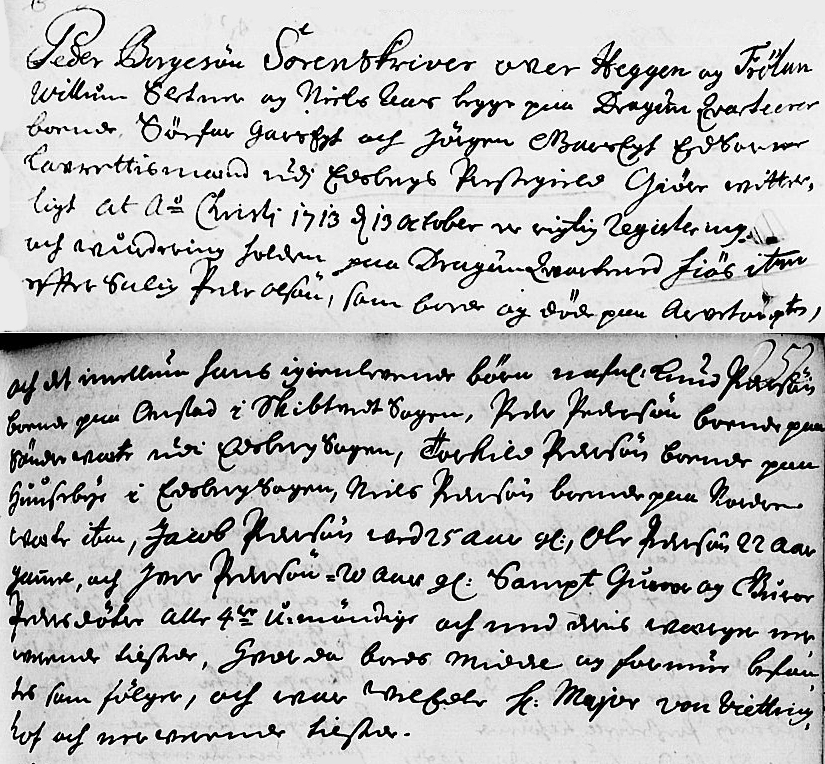 Peder Børgesøn Sorenskriver over Heggen og Frøland
Willum Sextner og Niels Aas begge paa Dragun Qvarteerer
boende, Søufar Garseyt och Jørgen Garseyt Edsorne
Lavrettismænd udj Edsbergs Prestegield Giøre witter,
ligt At Ao Christi 1713 d 13 October er rigtig Registering
och wurdering holden paa Dragun Qvarteered Fiøs item
effter Salig Peder Olsøn, som boede og døde paa Arvetompten,
och det imellum hans igienlevende børn nafnl: Knud Pedersøn
boende paa Onstad i Skibtvedt Sogen, Peder Pedersøn boende paa
Sønder udi Edsberg Sogen, Torkild Pedersøn boende paa
Huusebye i Edsberg Sogen, Niels Pedersøn boende paa Nordre
item, Jacob Pedersøn wed 25 aar gl:, Ole Pedersøn 22 aar
gamel, och Iver Pedersøn = 20 aar gl: Sampt Guroe og Guroe
Pedersdøter alle 4re u-mündige och med deris werger nær
werende tilstæde, Hvor da boeds Midde og formue befan,
tes som følger, och war WelEdle H: Major von Vietting,
hof och nerwerende tilstede.